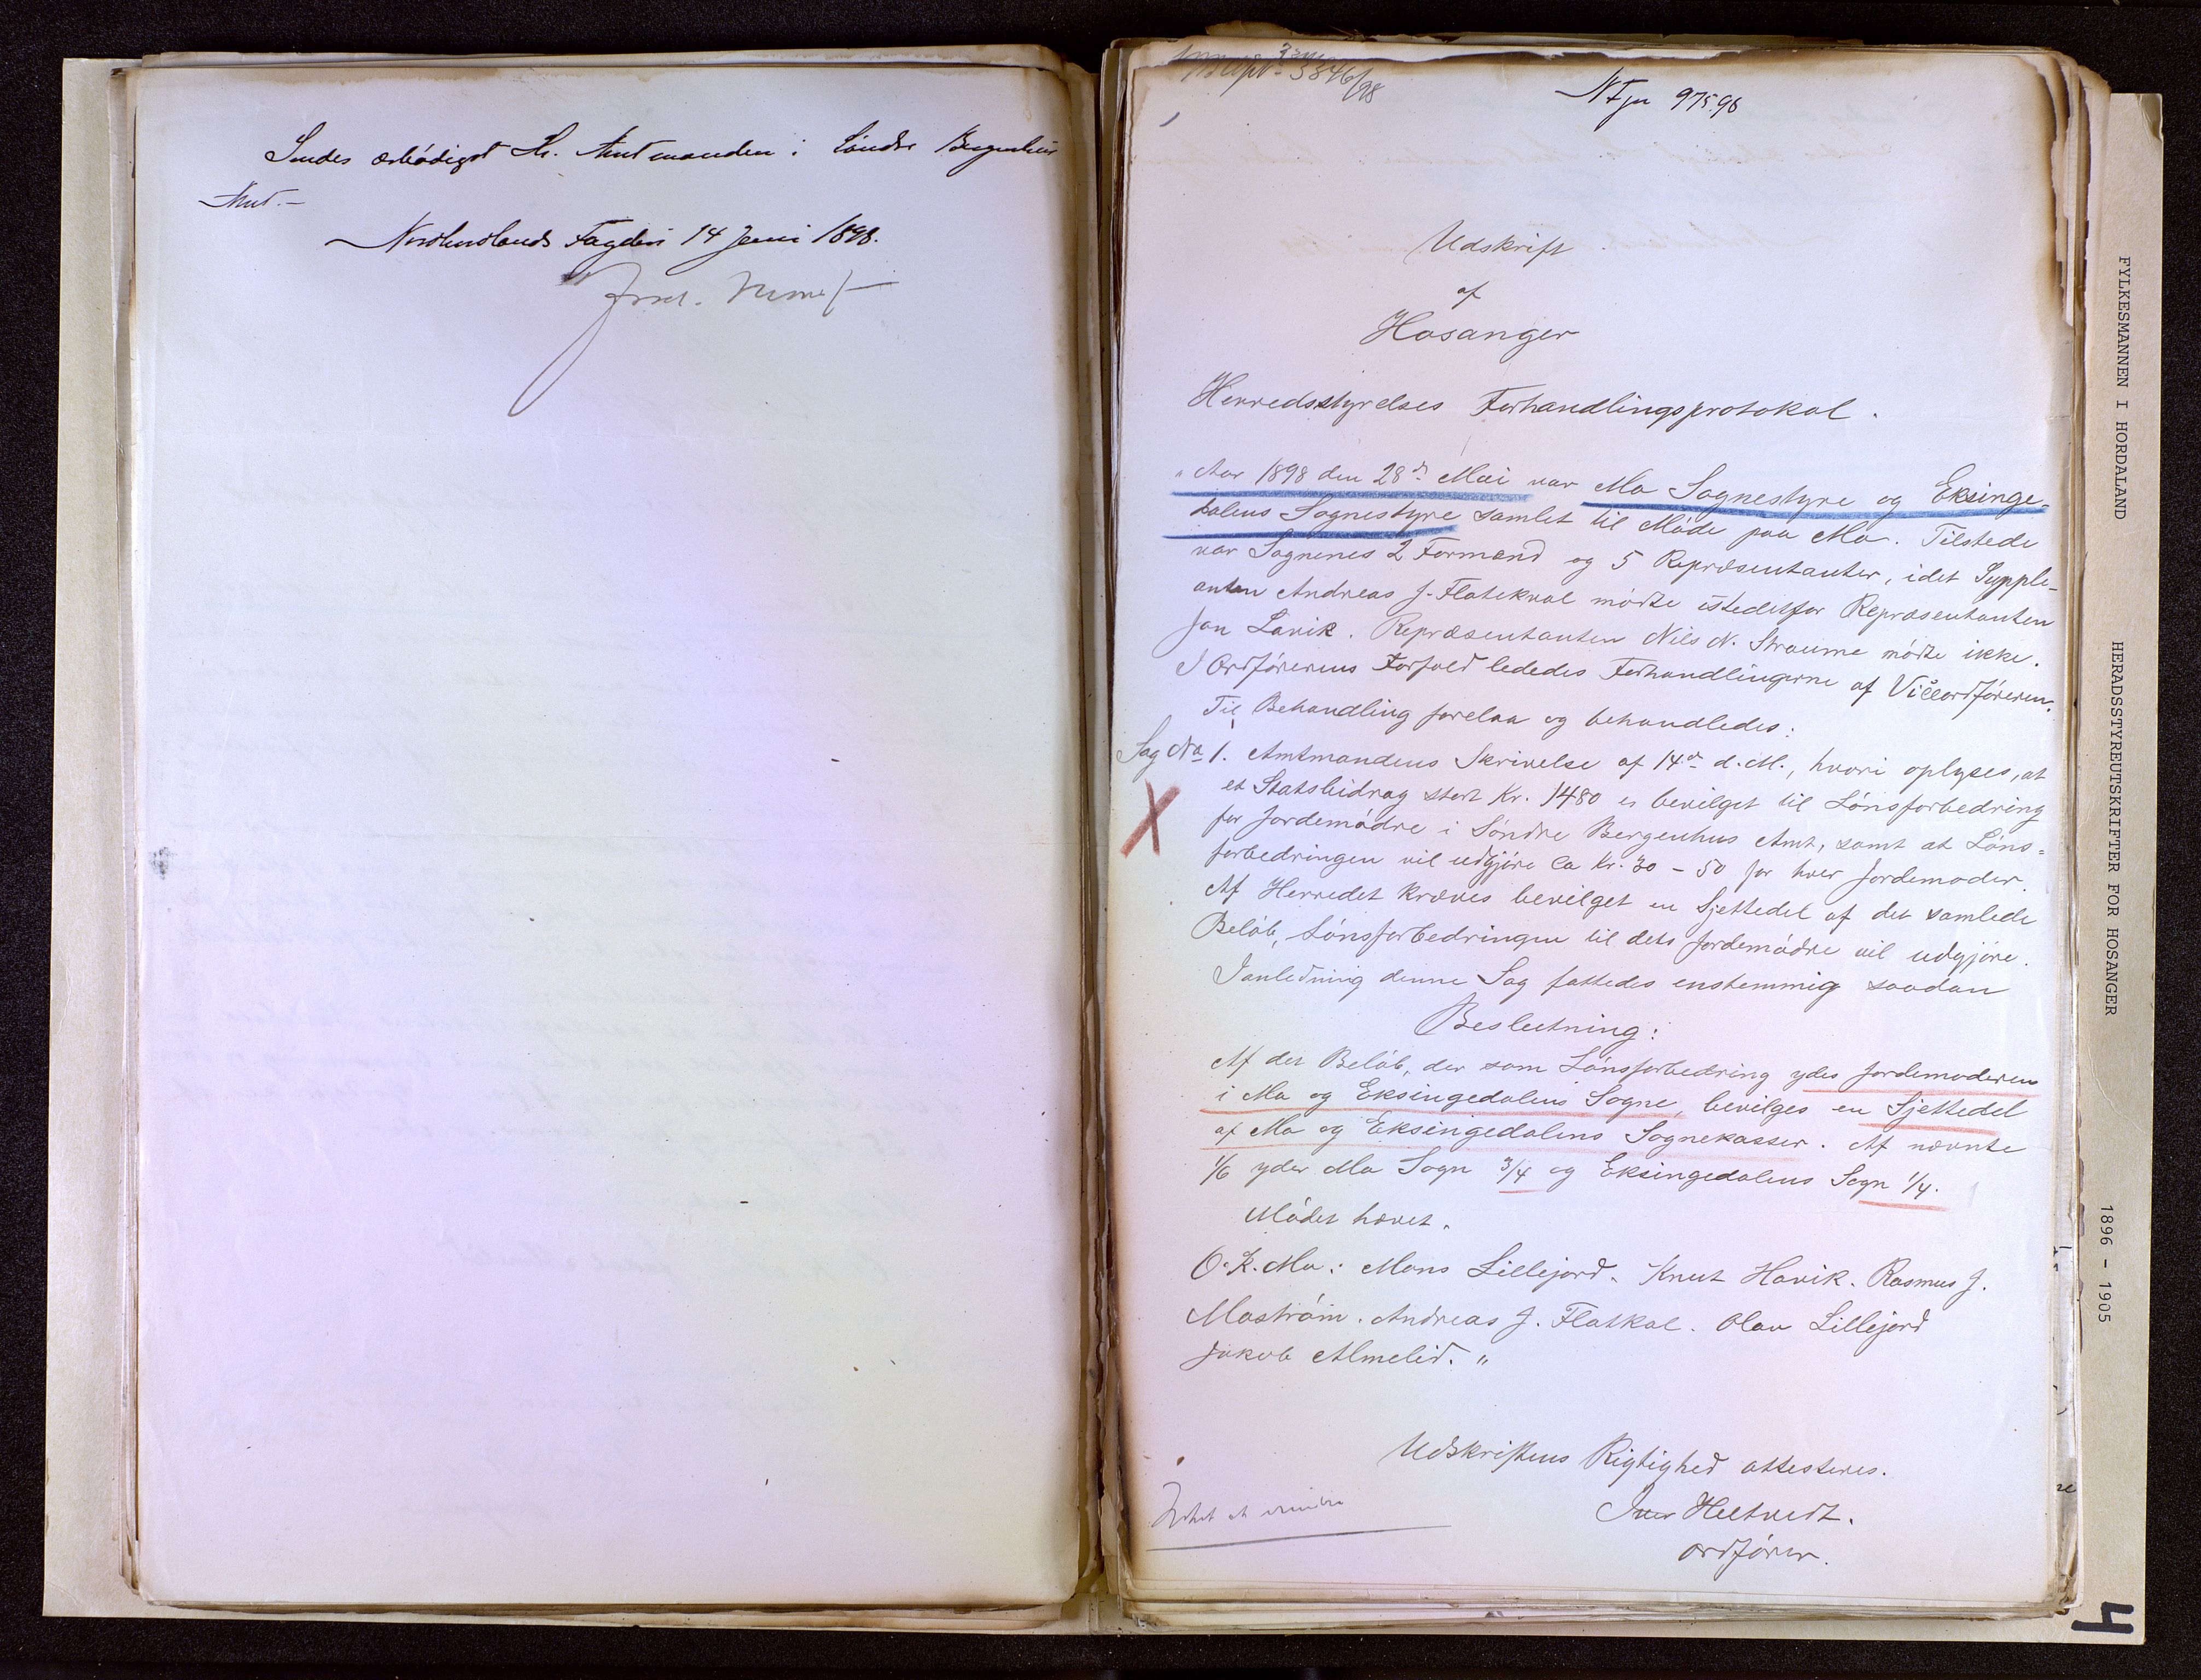 Sendes ærbødigst Hr. Amtmanden i Søndre Bergenhus
Amt.-
Nordhordlands Fogderi 14 Juni 1898.
3846/98
N Fju 975.98
Udskrift
af
Hosanger
Herredsstyrelses Forhandlingsprotokol.
"Aar 1898 den 28de Mai var Mo Sognestyre og Eksinge-
dalens Sognestyre samlet til Møde paa Mo. Tilstede
var Sognenes 2 Formænd og 5 Repræsentanter, idet Supple-
anten Andreas J. Flatekval mødte istedetfor Repræsentanten
Jon Lavik. Repræsentanten Nils N. Straume mødte ikke.
I Ordførerens Forfald lededes Forhandlingerne af Viceordføreren.
Til Behandling forelaa og behandledes:
Sag No 1. Amtmandens Skrivelse af 14de d.M., hvori oplyses, at
et Statsbidrag stort Kr. 1480 er bevilget til Lønsforbedring
for Jordemødre i Søndre Bergenhus Amt, samt at Løns-
forbedringen vil udgjøre Ca Kr. 30 - 50 for hver Jordemoder.
Af Herredet kræves bevilget en Sjettedel af det samlede
Beløb, Lønsforbedringen til dets Jordemødre vil udgjøre.
Ianledning denne Sag fattedes enstemmig saadan
Beslutning:
Af det Beløb, der som Lønsforbedring ydes Jordemoderen
i Mo og Eksingedalens Sogne, bevilges en Sjettedel
af Mo og Eksingedalens Sognekasser. Af nævnte
1/6 yder Mo Sogn 3/4 og Eksingedalens Sogn 1/4.
Mødet hævet.
O. K. Mo: Mons Lillejord. Knut Havik. Rasmus J.
Mostrøm. Andreas J. Flatkal. Olav Lillejord
Jakob Almelid. "
Udskriftens Rigtighed attesteres.
Iver Heltvedt.
Ordfører.
FYLKESMANNEN I HORDALAND
HERADSSTYREUTSKRIFTER FOR HOSANGER
1896 - 1905
4